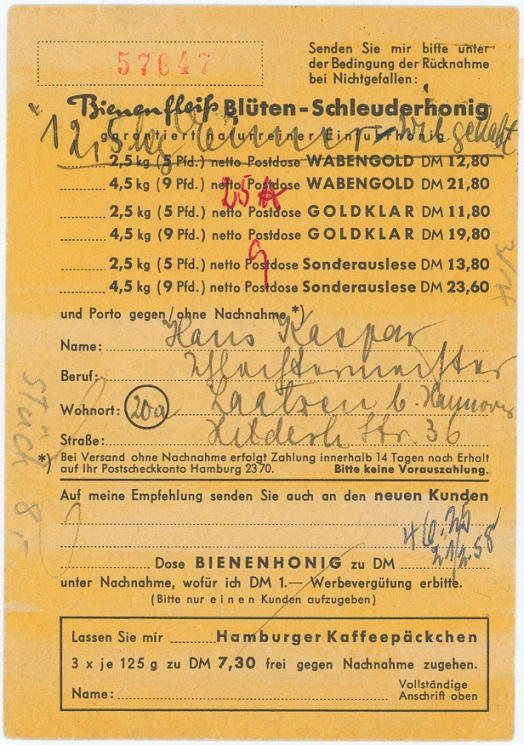 57647
Senden Sie mir bitte unter
der Bedingung der Rücknahme
bei Nichtgefallen:
Bienenfleiß Blüten-Schleuderhonig
garantiert naturreiner Einfuhrhonig
12,5 kg Eimer wie gehabt
2,5 kg (5 Pfd.) netto Postdose WABENGOLD DM 12,80
4,5 kg (9 Pfd.) netto Postdose WABENGOLD DM 21,80
25
2,5 kg (5 Pfd.) netto Postdose GOLDKLAR DM 11,80
4,5 kg (9 Pfd.) netto Postdose GOLDKLAR DM 19,80
2,5 kg (5 Pfd.) netto Postdose Sonderauslese DM 13,80
4,5 kg (9 Pfd.) netto Postdose Sonderauslese DM 23,60
und Porto gegen/ohne Nachnahme *)
Name: Hans Kaspar
Beruf:
Wohnort: 20a Laatzen b. Hannover
Straße: Hildesh. Str. 36
*) Bei Versand ohne Nachnahme erfolgt Zahlung innerhalb 14 Tagen nach Erhalt
auf Ihr Postscheckkonto Hamburg 2370. Bitte keine Vorauszahlung.
Stück 8,-
Auf meine Empfehlung senden Sie auch an den neuen Kunden
46.25
21/2.58
Dose BIENENHONIG zu DM
unter Nachnahme, wofür ich DM 1.— Werbevergütung erbitte.
(Bitte nur einen Kunden aufzugeben)
Lassen Sie mir Hamburger Kaffeepäckchen
3 x je 125 g zu DM 7,30 frei gegen Nachnahme zugehen.
Name: Vollständige
Anschrift oben